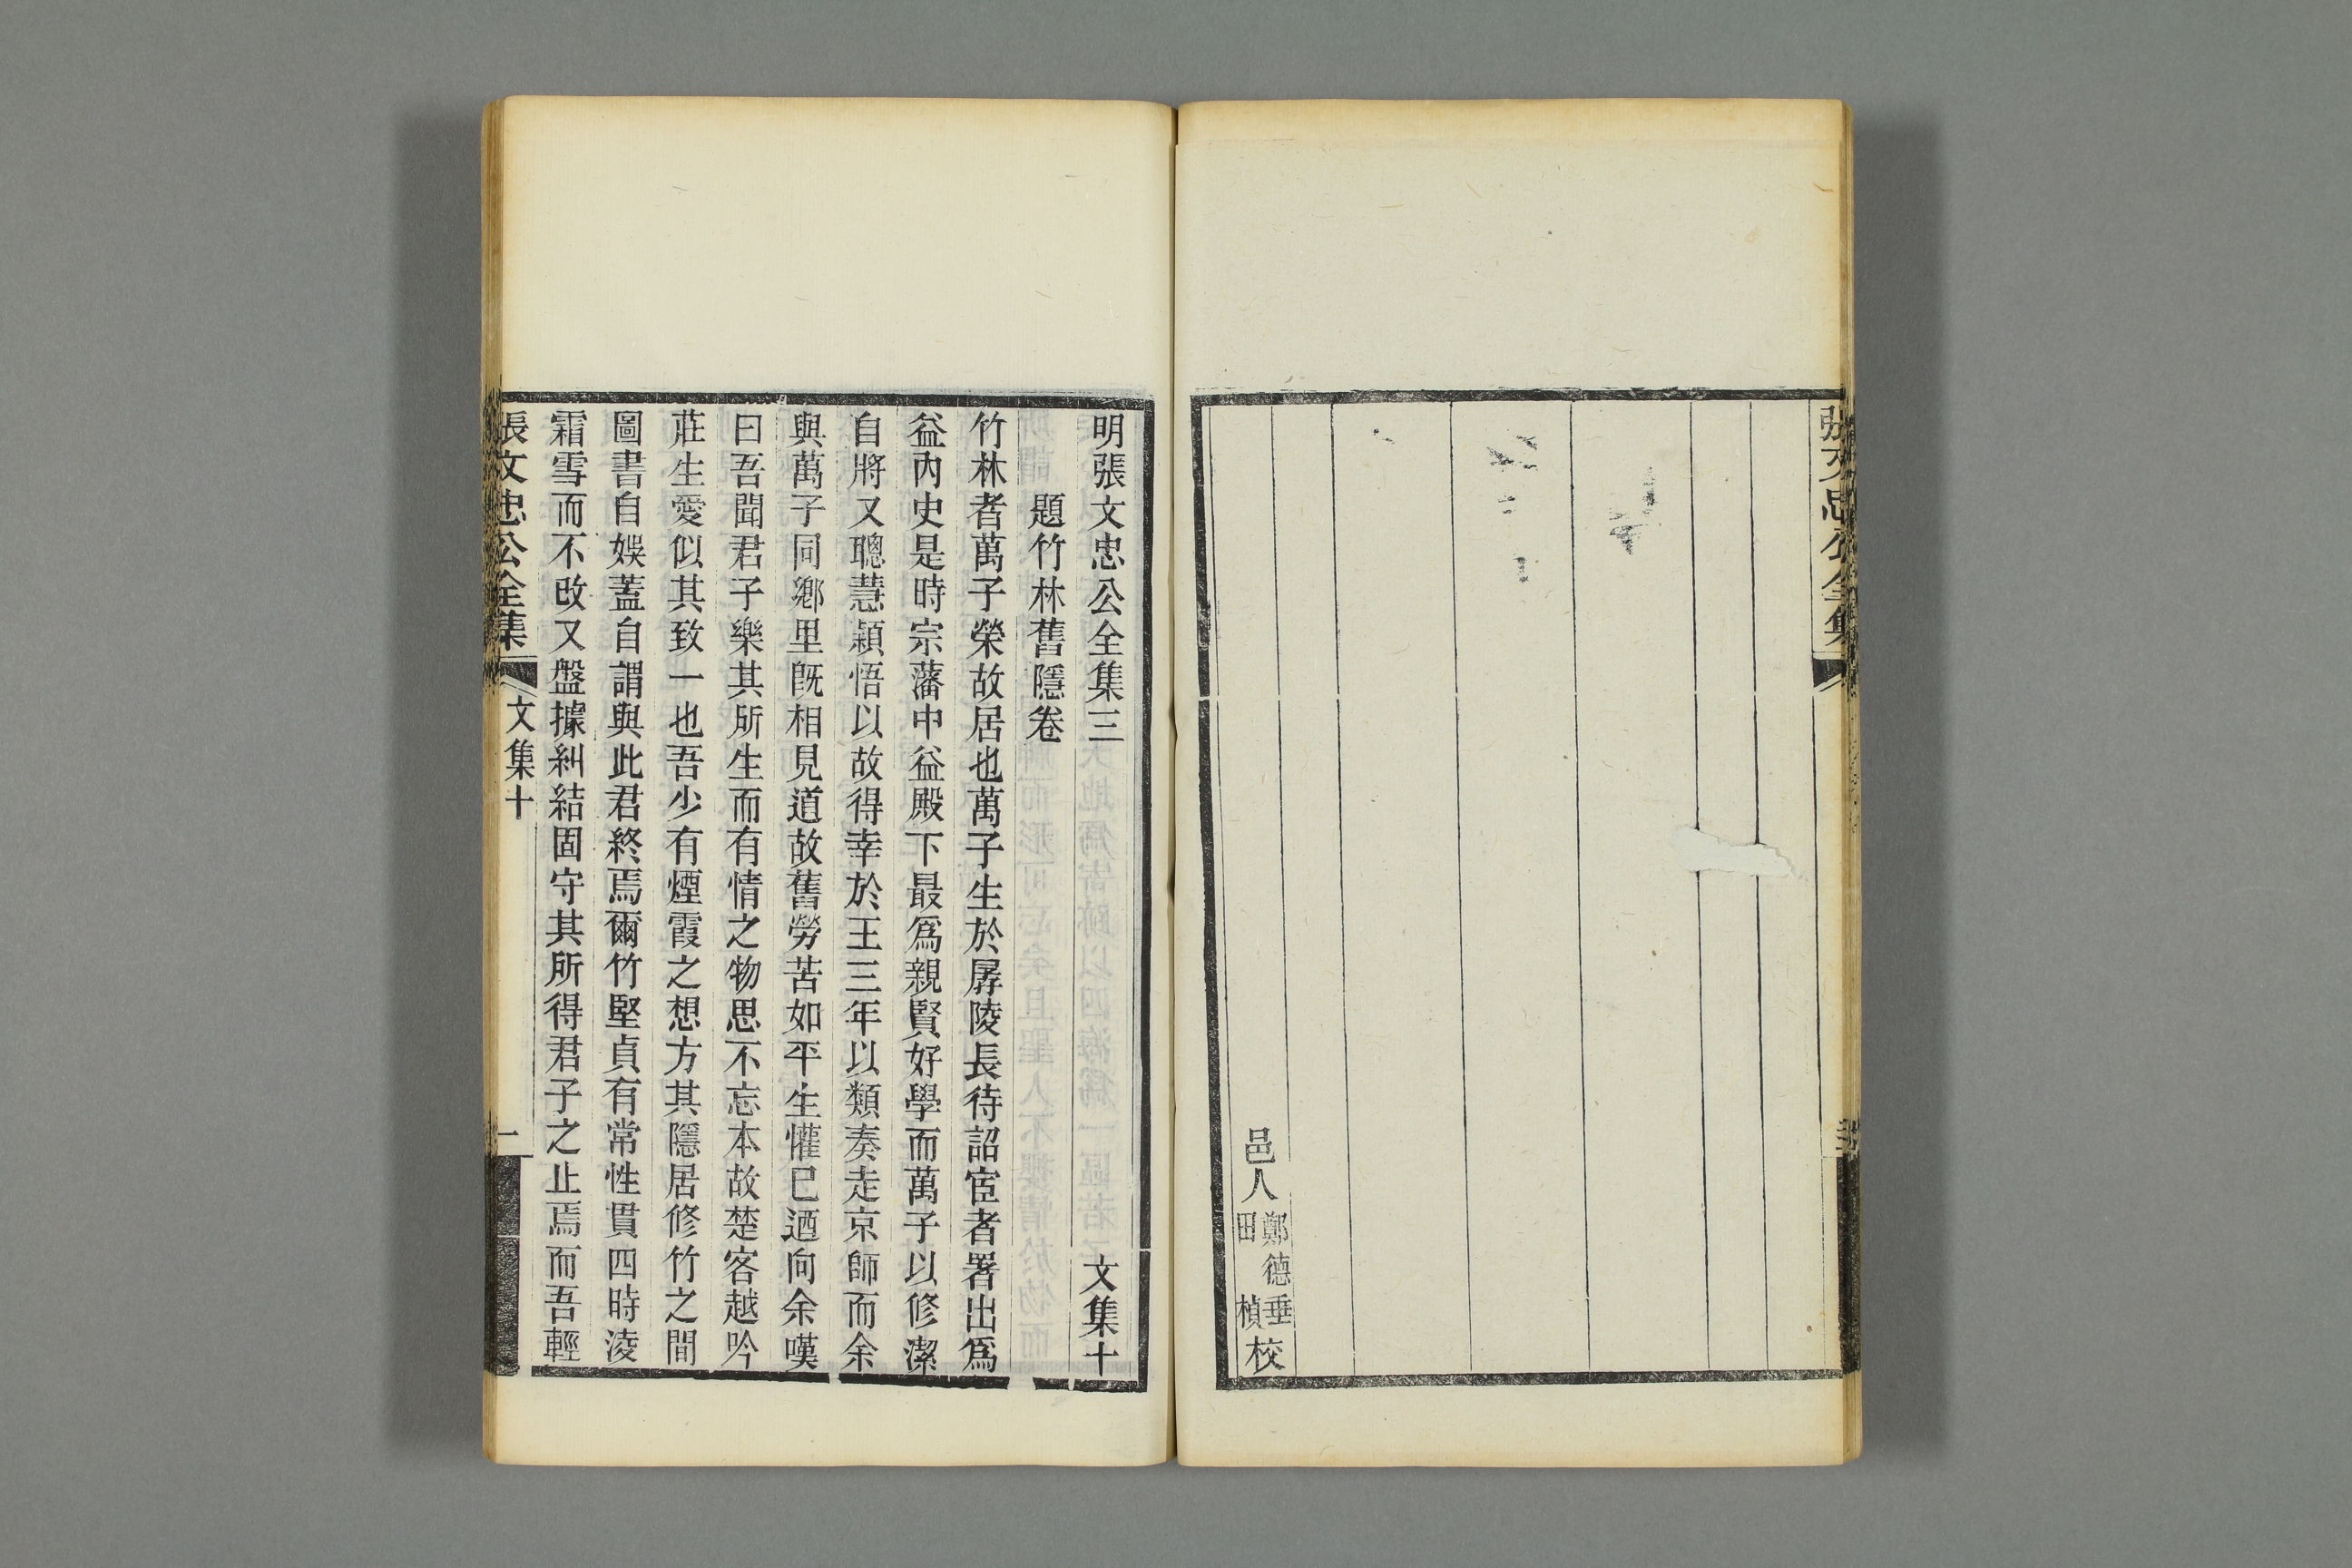 張文忠公全集
邑人鄭德垂田楨校
明張文忠公全集三 文集十
題竹林舊隱卷
竹林者萬子榮故居也萬子生於孱陵長待詔宦者署出爲
益內史是時宗藩中益殿下最爲親賢好學而萬子以修潔
自將又聰慧穎悟以故得幸於王三年以類奏走京師而余
與萬子同鄉里旣相見道故舊勞苦如平生懽已迺向余嘆
曰吾聞君子樂其所生而有情之物思不忘本故楚客越吟
莊生愛似其致一也吾少有煙霞之想方其隱居修竹之間
圖書自娛蓋自謂與此君終焉爾竹堅貞有常性貫四時淩
霜雪而不改又盤據糾結固守其所得君子之止焉而吾輕
張文忠公全集 文集十 一